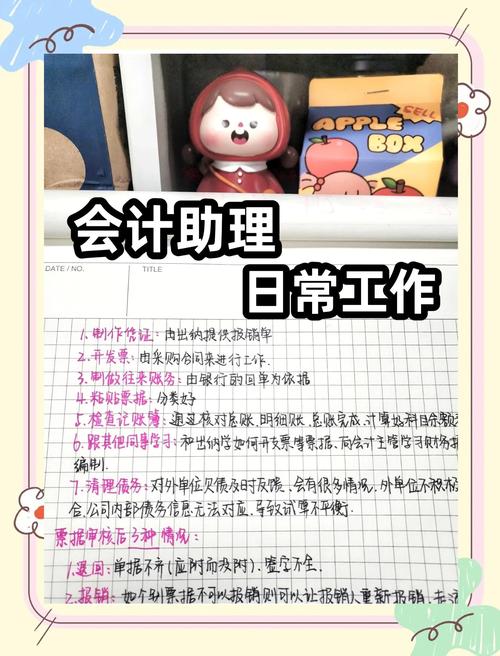 SELL
APPLE
BOX
会计助理
日常工作
DATE / NO.
TITLE
1.制作凭证:由出纳提供报销单
2.开发票:由采购合同来进行工作.
3.制做往来账务:由银行的回单为依据
4.粘贴票据:分类好
5.检查记账簿:通过核对总账、明细账、总账完成、计算好科目余额
6.跟其他同事学习:和出纳学如何开支票等票据、向会计主管学习财务报
编制.
7.清理债务:对外单位欠债及时反馈、会有很多情况、外单位不积极
会.公司内部债务信息无法对应、导致试算不平衡.
票据审核后3种情况:
1.退回:单据不齐(应附而没附)、签字不全.
2.报销:如个别票据不可以报销则可以让报销人重新报销、走